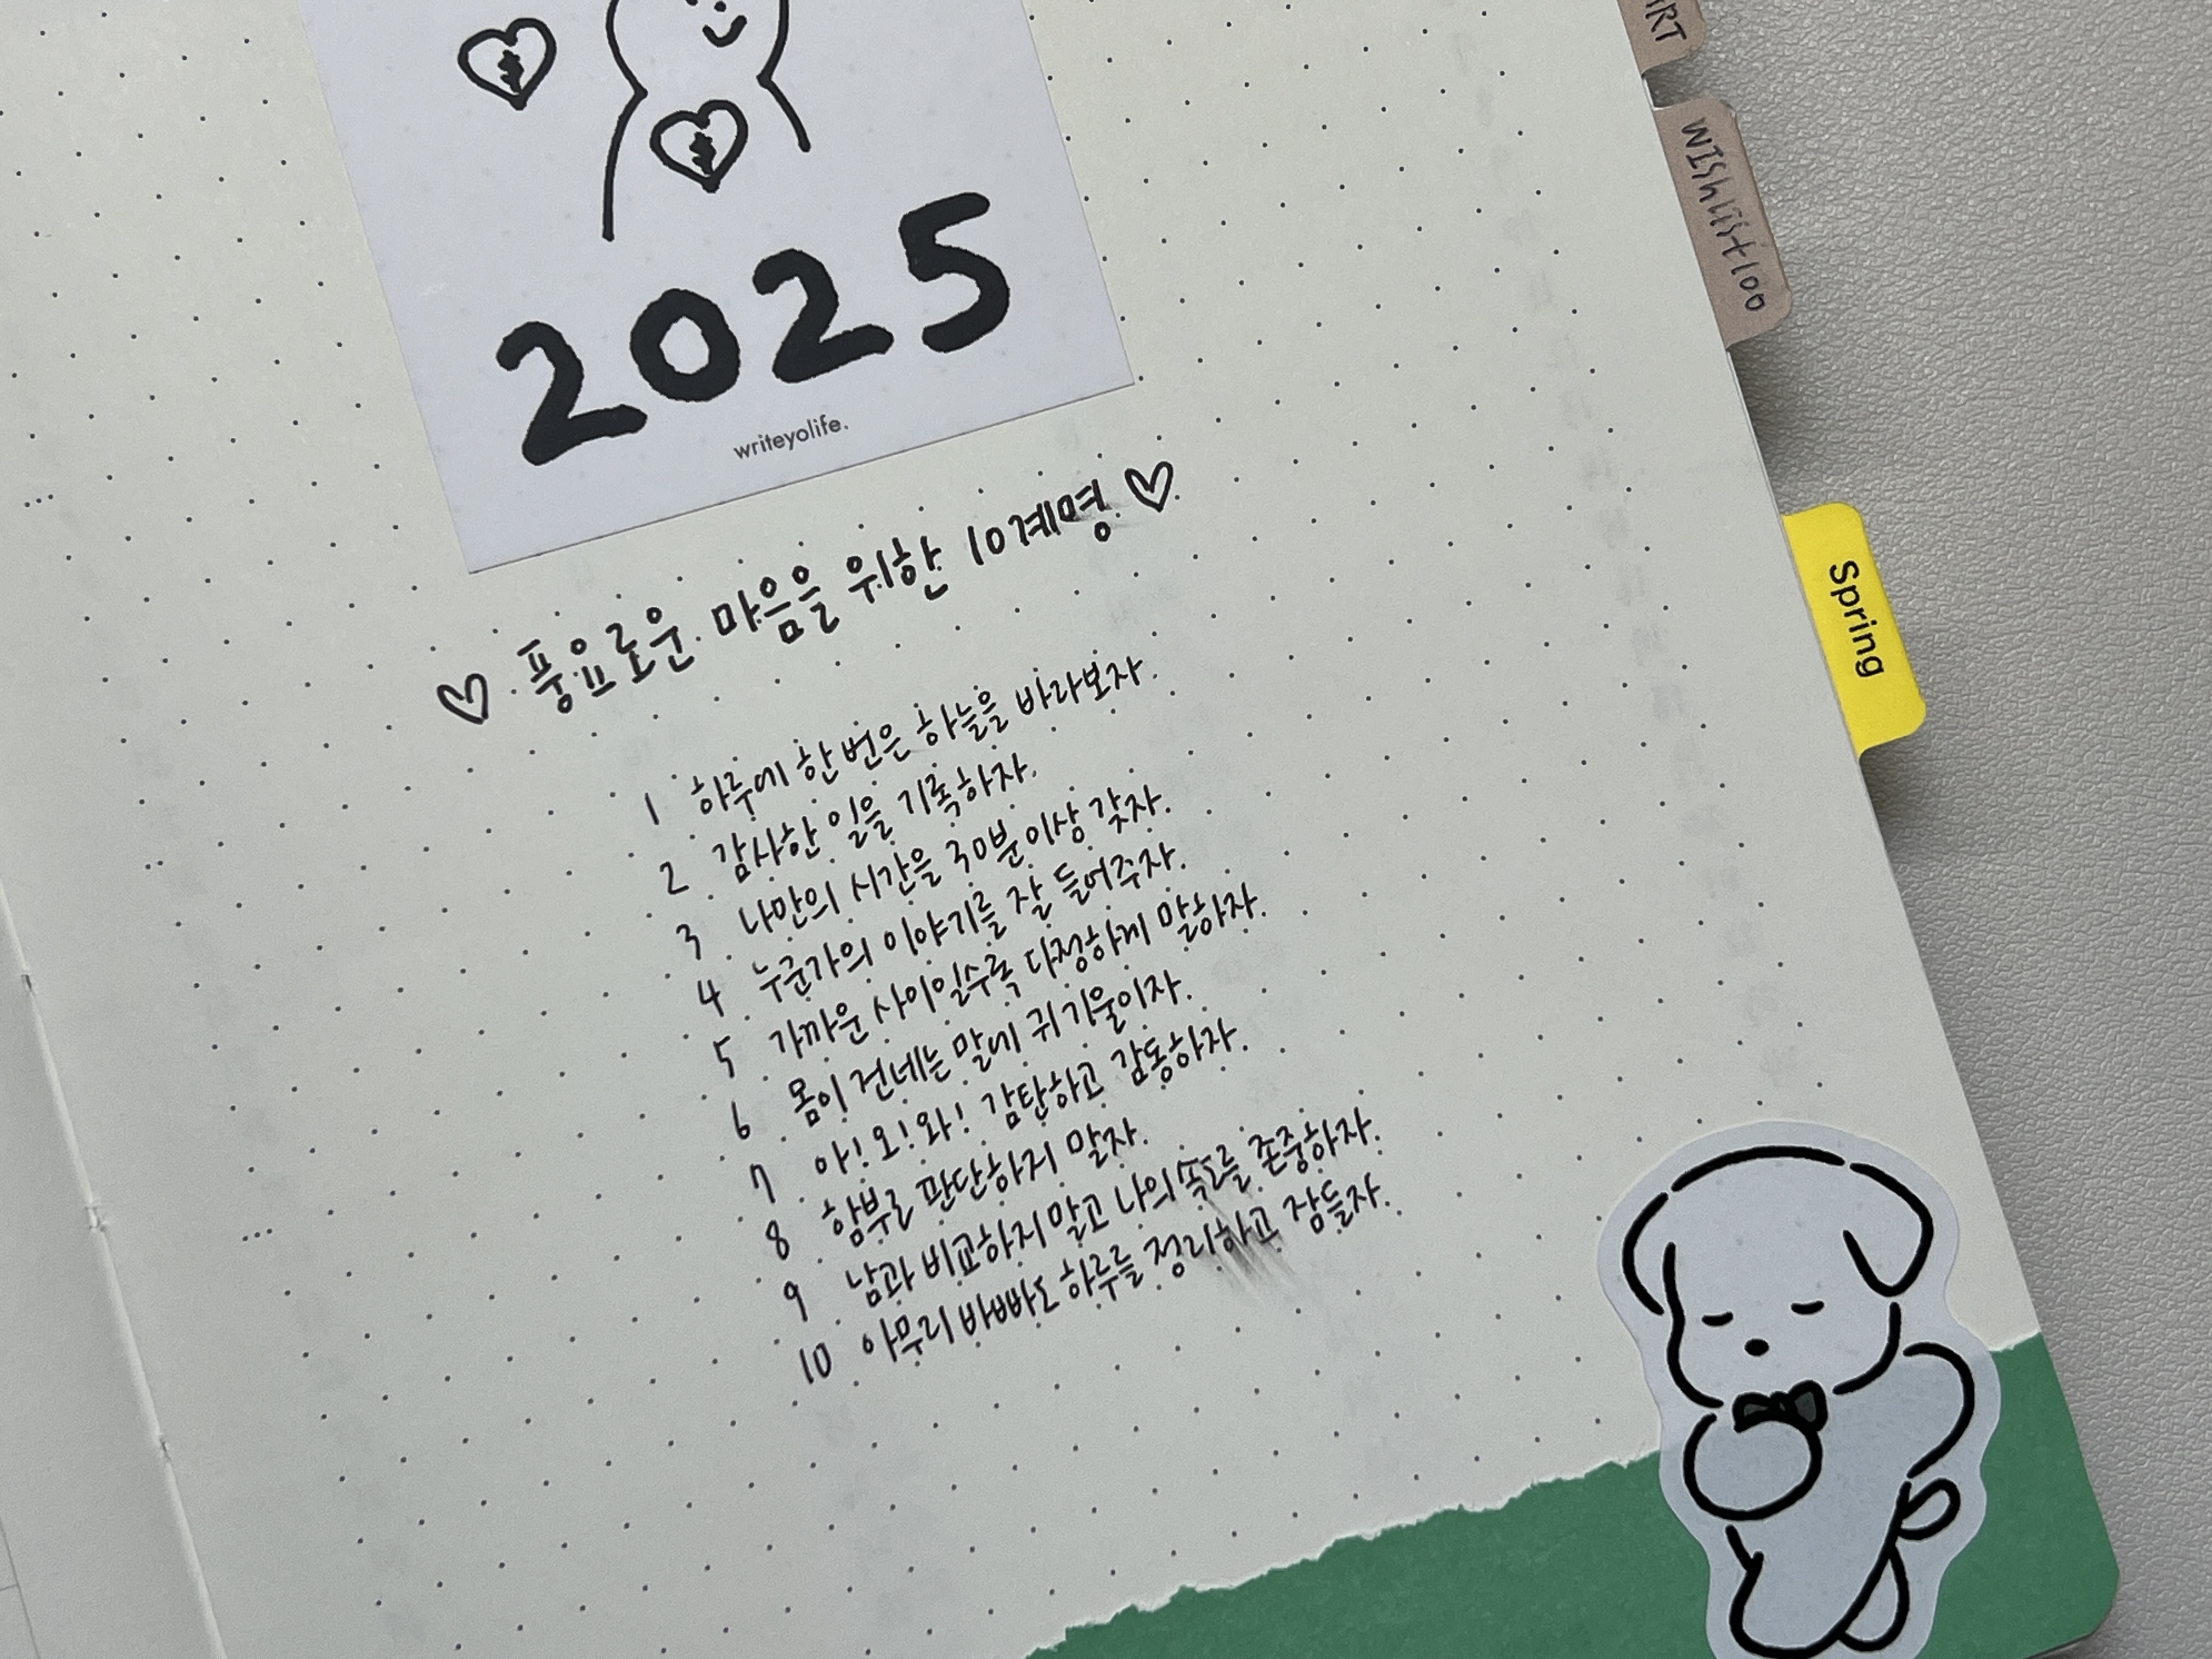 2025
writeyolife.
♡ 풍요로운 마음을 위한 10계명 ♡
1 하루에 한 번은 하늘을 바라보자.
2 감사한 일을 기록하자.
3 나만의 시간을 30분 이상 갖자.
4 누군가의 이야기를 잘 들어주자.
5 가까운 사이일수록 다정하게 말하자.
6 몸이 건네는 말에 귀 기울이자.
7 아! 오! 와! 감탄하고 감동하자.
8 함부로 판단하지 말자.
9 남과 비교하지 말고 나의 속도를 존중하자.
10 아무리 바빠도 하루를 정리하고 잠들자.
WIShlist100
Spring